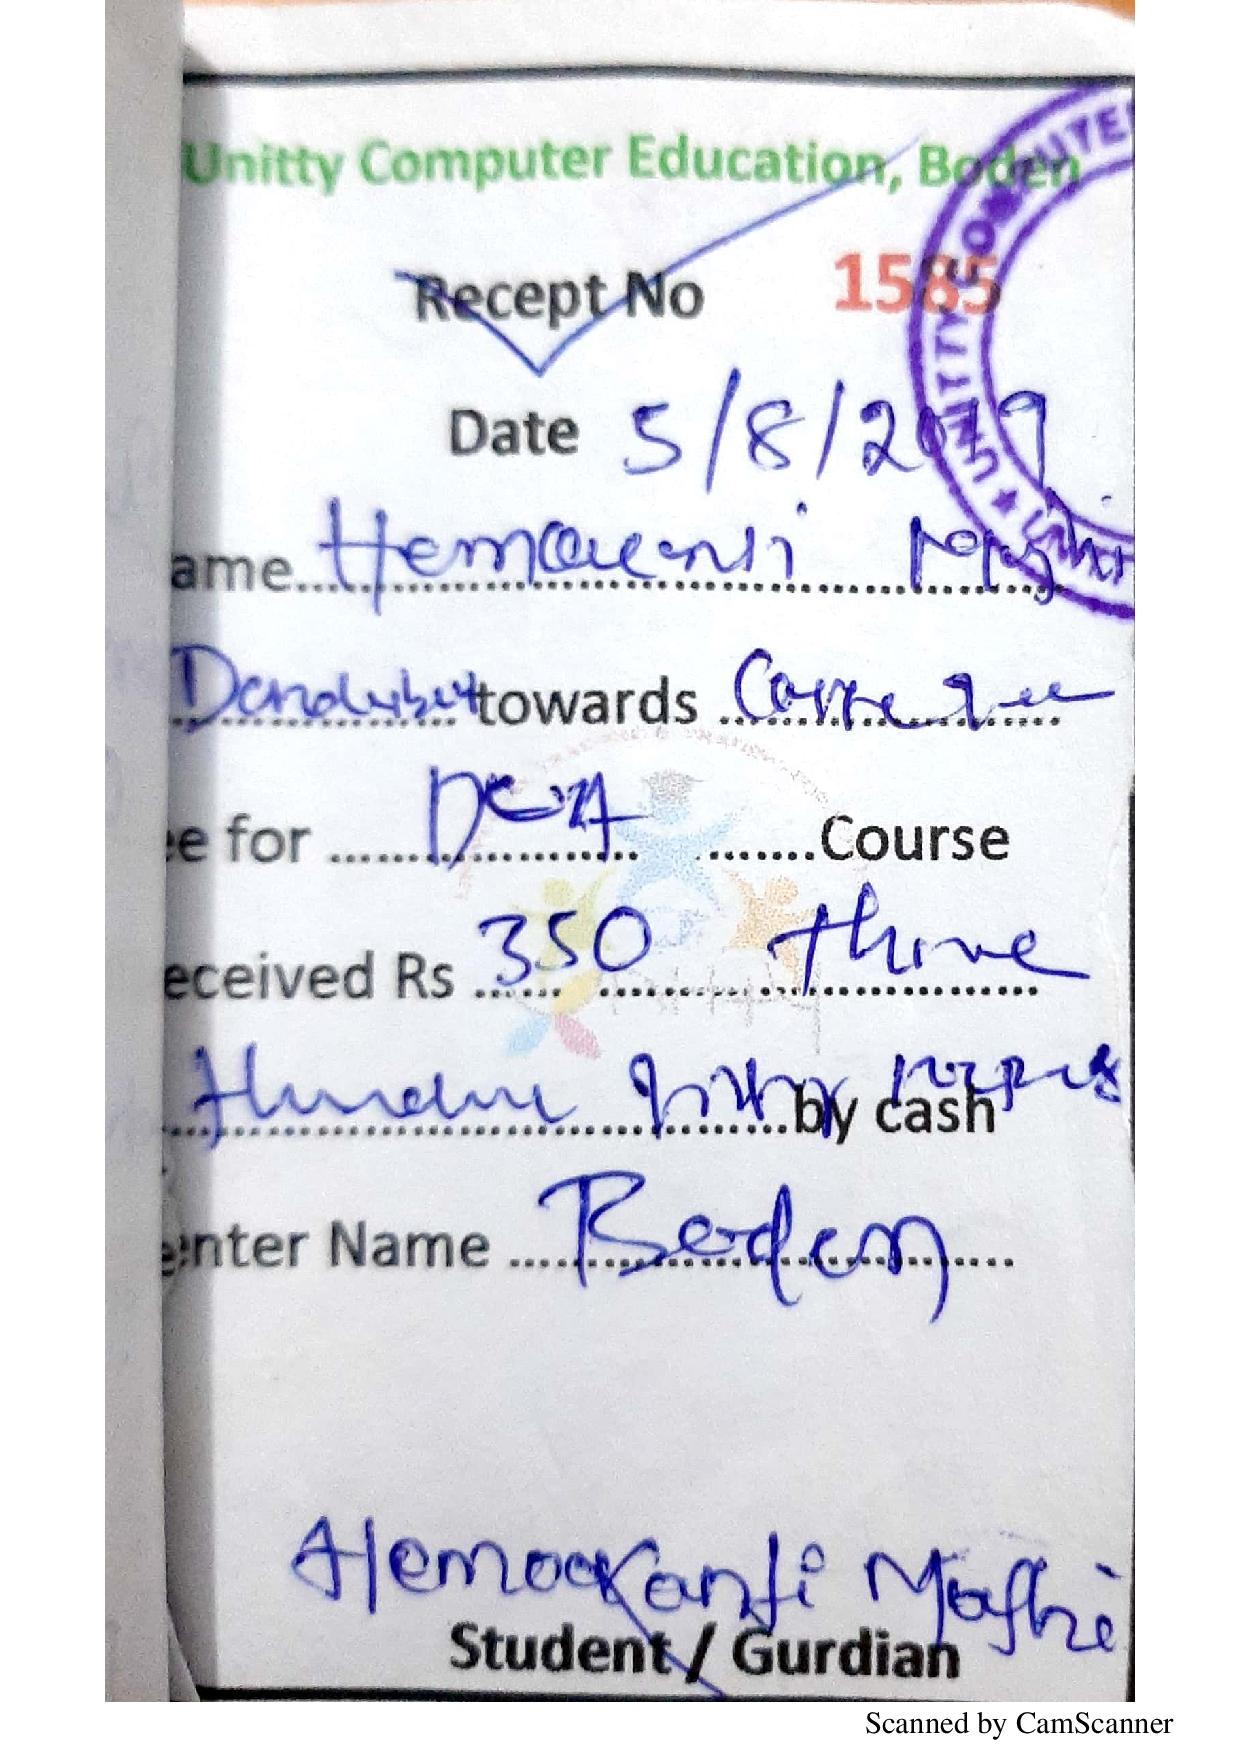 Unitty Computer Education, Boden
Recept No 1585
Date 5/8/2019
ame Hemakanti Majhi
towards Course Fee
ee for DCA Course
eceived Rs 350 three
Hundre fifty rupees by cash
enter Name Boden
Hemakanti Majhi
Student / Gurdian
UNITTY COMPUTE
Scanned by CamScanner